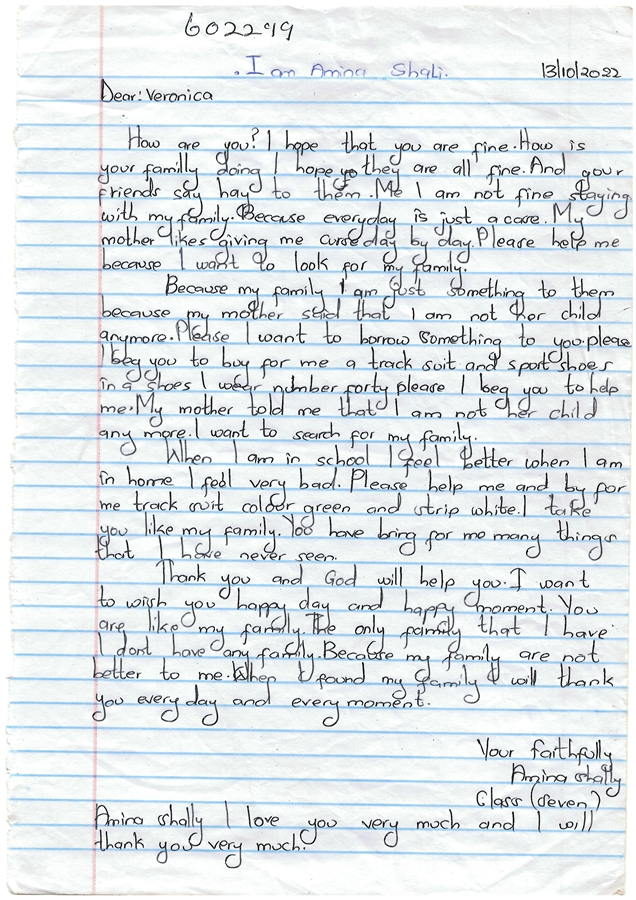 602299
.I am Amina Shali.
13/10/2022
Dear: Veronica
How are you? I hope that you are fine. How is
your familly doing I hope they are all fine. And your
friends say hay to them. Me I am not fine staying
with my family. Because everyday is just a case. My
mother likes giving me curse day by day. Please help me
because I want to look for my family.
Because my family I am just something to them
because my mother said that I am not her child
anymore. Please I want to borrow something to you please
I beg you to buy for me a track suit and sport shoes
in a shoes I wear number forty please I beg you to help
me. My mother told me that I am not her child
any more. I want to search for my family.
When I am in school I feel better when I am
in home I feel very bad. Please help me and by for
me track suit colour green and strip white. I take
you like my family. You have bring for me many things
that I have never seen.
Thank you and God will help you. I want
to wish you happy day and happy moment. You
are like my family. The only family that I have
I dont have any family. Because my family are not
better to me. When I found my family I will thank
you every day and every moment.
Your faithfully
Amina shally
Class (seven)
Amina shally I love you very much and I will
thank you very much.